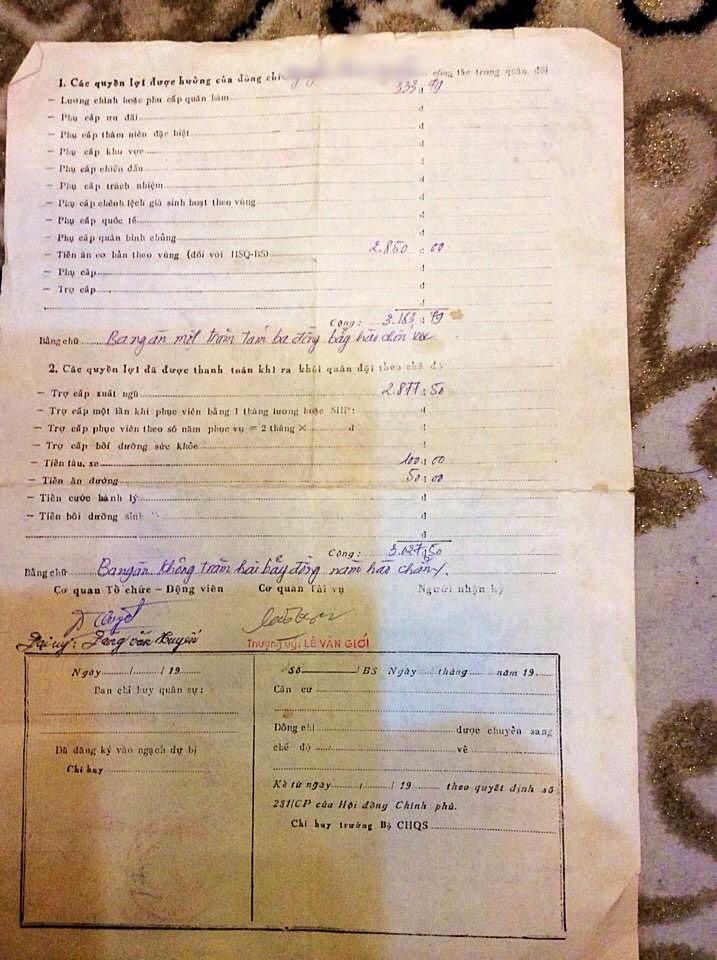 1. Các quyền lợi được hưởng của đồng chí công tác trong quân đội
— Lương chính hoặc phụ cấp quân hàm 333 đ 79
— Phụ cấp ưu đãi đ
— Phụ cấp thâm niên đặc biệt đ
— Phụ cấp khu vực đ
— Phụ cấp chiến đấu đ
— Phụ cấp trách nhiệm đ
— Phụ cấp chênh lệch giá sinh hoạt theo vùng đ
— Phụ cấp quốc tế đ
— Phụ cấp quân binh chủng đ
— Tiền ăn cơ bản theo vùng (đối với HSQ-BS) 2.850 đ 00
— Phụ cấp đ
— Trợ cấp đ
đ
Cộng: 3.183 đ 79
Bằng chữ Ba ngàn một trăm tám ba đồng bảy hào chín xu
2. Các quyền lợi đã được thanh toán khi ra khỏi quân đội theo chế độ
— Trợ cấp xuất ngũ 2.877 đ 50
— Trợ cấp một lần khi phục viên bằng 1 tháng lương hoặc SHP: đ
— Trợ cấp phục viên theo số năm phục vụ = 2 tháng × đ đ
— Trợ cấp bồi dưỡng sức khỏe đ
— Tiền tàu, xe 100 đ 00
— Tiền ăn đường 50 đ 00
— Tiền cước hành lý đ
— Tiền bồi dưỡng sinh đ
đ
Cộng: 3.027 đ 50
Bằng chữ Ba ngàn không trăm hai bảy đồng năm hào chẵn
Cơ quan Tổ chức – Động viên Cơ quan Tài vụ Người nhận ký
Đại úy: Đặng Văn Huyến Thượng úy: LÊ VĂN GIỚI
Ngày / / 19
Ban chỉ huy quân sự:
Đã đăng ký vào ngạch dự bị
Chỉ huy
Số /BS Ngày tháng năm 19
Căn cứ
Đồng chí được chuyển sang
chế độ về
Kể từ ngày / / 19 theo quyết định số
281/CP của Hội đồng Chính phủ.
Chỉ huy trưởng Bộ CHQS